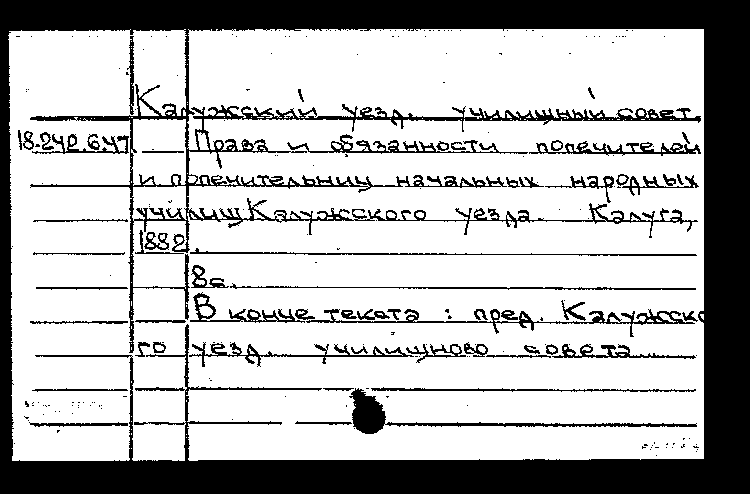 Калужский уезд. училищный совет.
18.242.6.47. Права и обязанности попечителей
и попечительниц начальных народных
училищ Калужского уезда. Калуга,
1882.
8с.
В конце текста : пред. Калужско
го уезд. училищново совета